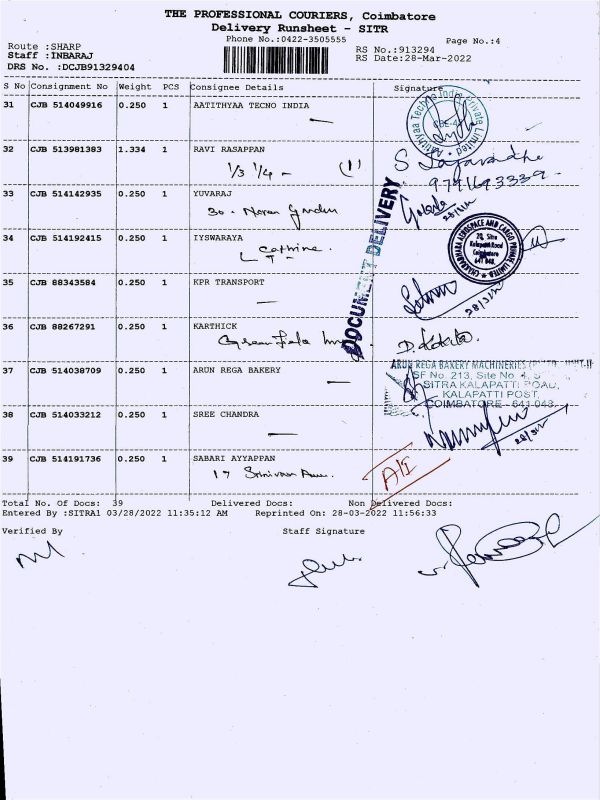 THE PROFESSIONAL COURIERS, Coimbatore
Delivery Runsheet - SITR
Phone No.:0422-3505555
Page No.:4
Route :SHARP
RS No.:913294
Staff :INBARAJ
RS Date:28-Mar-2022
DRS No. :DCJB91329404
S No Consignment No Weight PCS Consignee Details Signature
31 CJB 514049916 0.250 1 AATITHYAA TECNO INDIA
32 CJB 513981383 1.334 1 RAVI RASAPPAN
1/3 1/4 - (1)
33 CJB 514142935 0.250 1 YUVARAJ
30
34 CJB 514192415 0.250 1 IYSWARAYA
35 CJB 88343584 0.250 1 KPR TRANSPORT
36 CJB 88267291 0.250 1 KARTHICK
37 CJB 514038709 0.250 1 ARUN REGA BAKERY
38 CJB 514033212 0.250 1 SREE CHANDRA
39 CJB 514191736 0.250 1 SABARI AYYAPPAN
17
DOCUMENT DELIVERY
CHAKRABHARA AEROSPACE AND CARGO PRIVATE LIMITED
Kalapatti Road
Coimbatore
641 048.
ARUN REGA BAKERY MACHINERIES
SF No. 213, Site No.
SITRA KALAPATTI ROAD,
KALAPATTI POST,
COIMBATORE - 641 048.
Total No. Of Docs: 39 Delivered Docs: Non Delivered Docs:
Entered By :SITRA1 03/28/2022 11:35:12 AM Reprinted On: 28-03-2022 11:56:33
Verified By Staff Signature